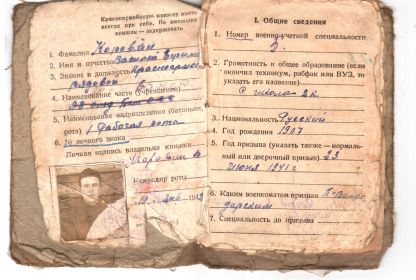 Красноармейскую книжку иметь
всегда при себе. Не имеющих
книжек — задерживать
1. Фамилия
2. Имя и отчество Василий
3. Звание и должность Красноармеец
Рядовой
4. Наименование части (учреждения)
5. Наименование подразделения (батальон,
рота) 1 рабочая рота
6. № личного знака
Личная подпись владельца книжки
Командир роты
I. Общие сведения
1. Номер военно-учетной специальности
2. Грамотность и общее образование (если
окончил техникум, рабфак или ВУЗ, то
указать его название)
3. Национальность Русский
4. Год рождения 1907
5. Год призыва (указать также — нормаль-
ный или досрочный призыв) 23
июня 1941 г
6. Каким военкоматом призван
дарским
7. Специальность до призыва